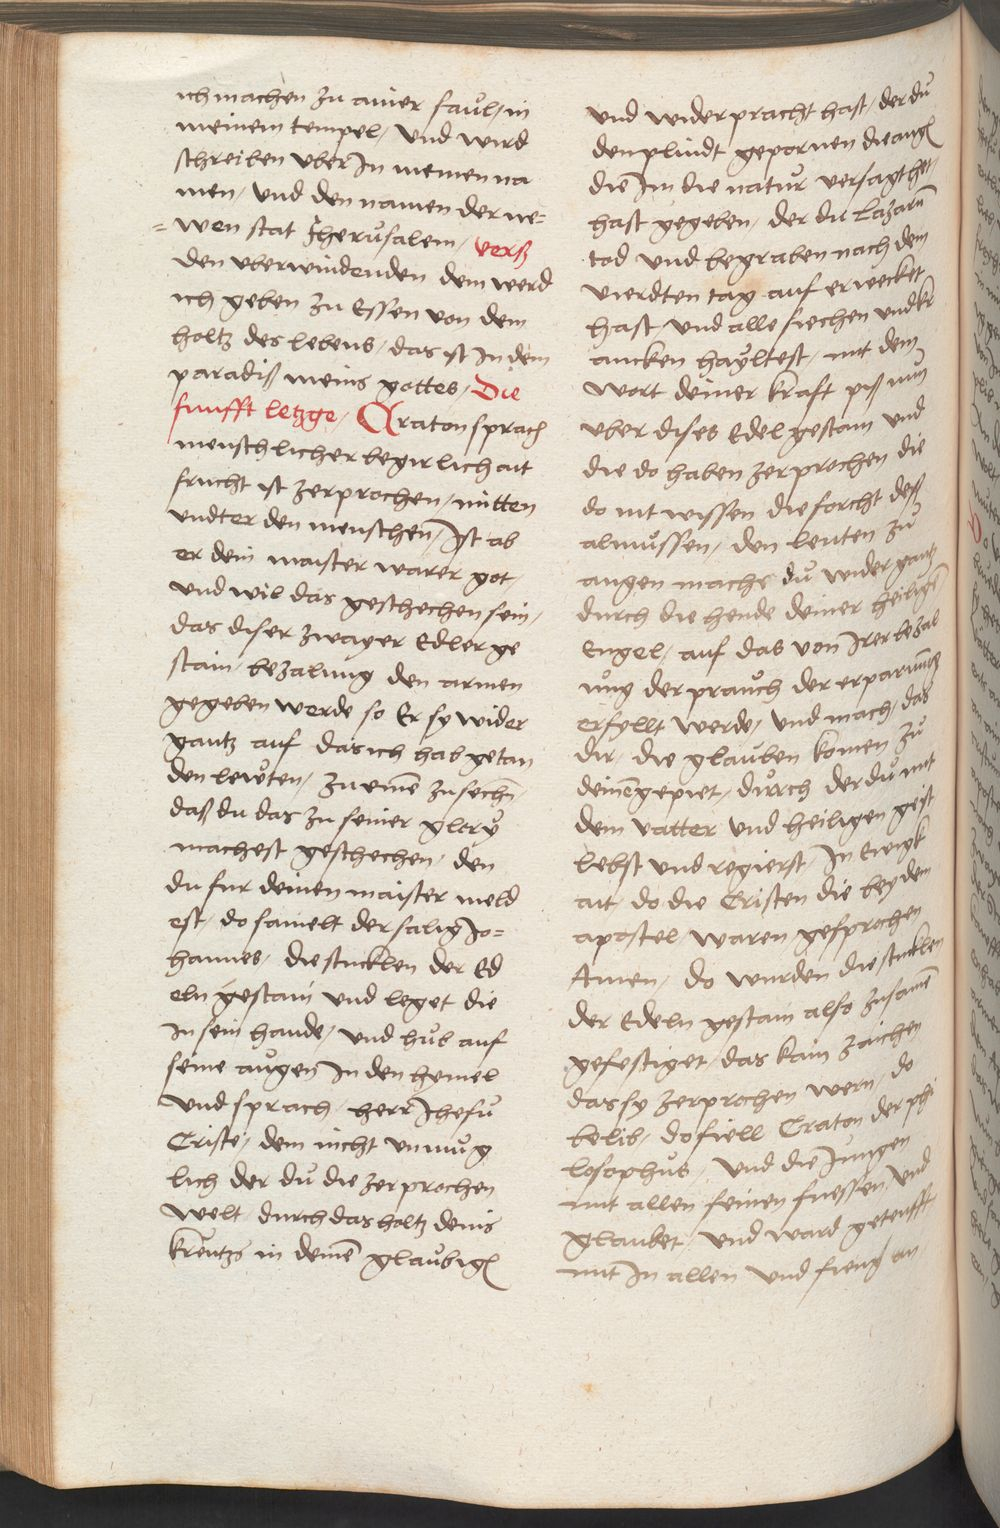 ich machen zu ainer saul / in
meinem tempel / und wird
schreiben uber In meinen na
men / und den namen der ne=
= wen stat Jherusalem / vers
den uberwindenden dem werd
ich geben zu Essen von dem
holtz des lebens / das ist in dem
paradiß meins gottes / Die
funfft letzge / Craton sprach
menschlicher begirlichait
frucht ist zerprochen / mitten
undter den menschen / Ist ab
er dein maister warer got /
und wil das geschechen sein /
das diser zwayer Edler ge
stain / bezalung den armen
gegeben werde so Er sy wider
gantz auf das ich hab getan
den lewten / zu einē zusechñ
daß du das zu seiner glory
machest geschechen / den
du fur deinen maister meld
est / do samelt der salig Jo=
hannes / die stucklen der Ed
eln gestain und leget die
In sein hande / und hub auf
seine augen In den hymel
und sprach / herr Jhesu
Criste / dem nicht unmug
lich der du die zerprochen
welt durch das holtz deins
kreutzs in deinē glaubigen
und widerpracht hast / der du
den plindt gepornen die augen
die Im die natur versagt het /
hast gegeben / der du Lazarū
tod und begraben nach dem
vierdten tag auf erwecket
hast / und alle siechen und kr
ancken hayltest / mit dem
wort deiner kraft piß nun
uber dises Edel gestain und
die do haben zerprochen die
do nit wissen die forcht deß
almussen / den leuten zu
augen mache du wider gantz
durch die hende deiner heiligen
Engel / auf das von Irer bezal
ung der prauch der erparmūg
erfyllt werde / und mach / das
dir / die glauben komen zu
deinē gepiet / durch der du mit
dem vatter und heiligen geist
lebst und regierst / In Ewigk
ait do die Cristen die bey dem
apostel / waren gesprochen
Amen / do wurden die stucklen
der Edeln gestain also zusamē
gefestiget / das kain zaichen
das sy zerprochen wern / do
belib / do fiell Craton der phi
losophus / und die Jungen
mit allen seinen fuessen / und
glaubet / und ward getaufft
mit In allen und fieng an